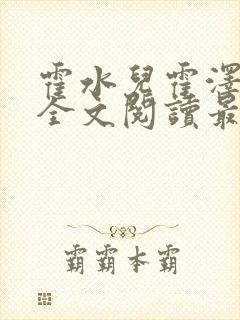 霍水兒霍澤
全文閱讀最
霸霸本霸